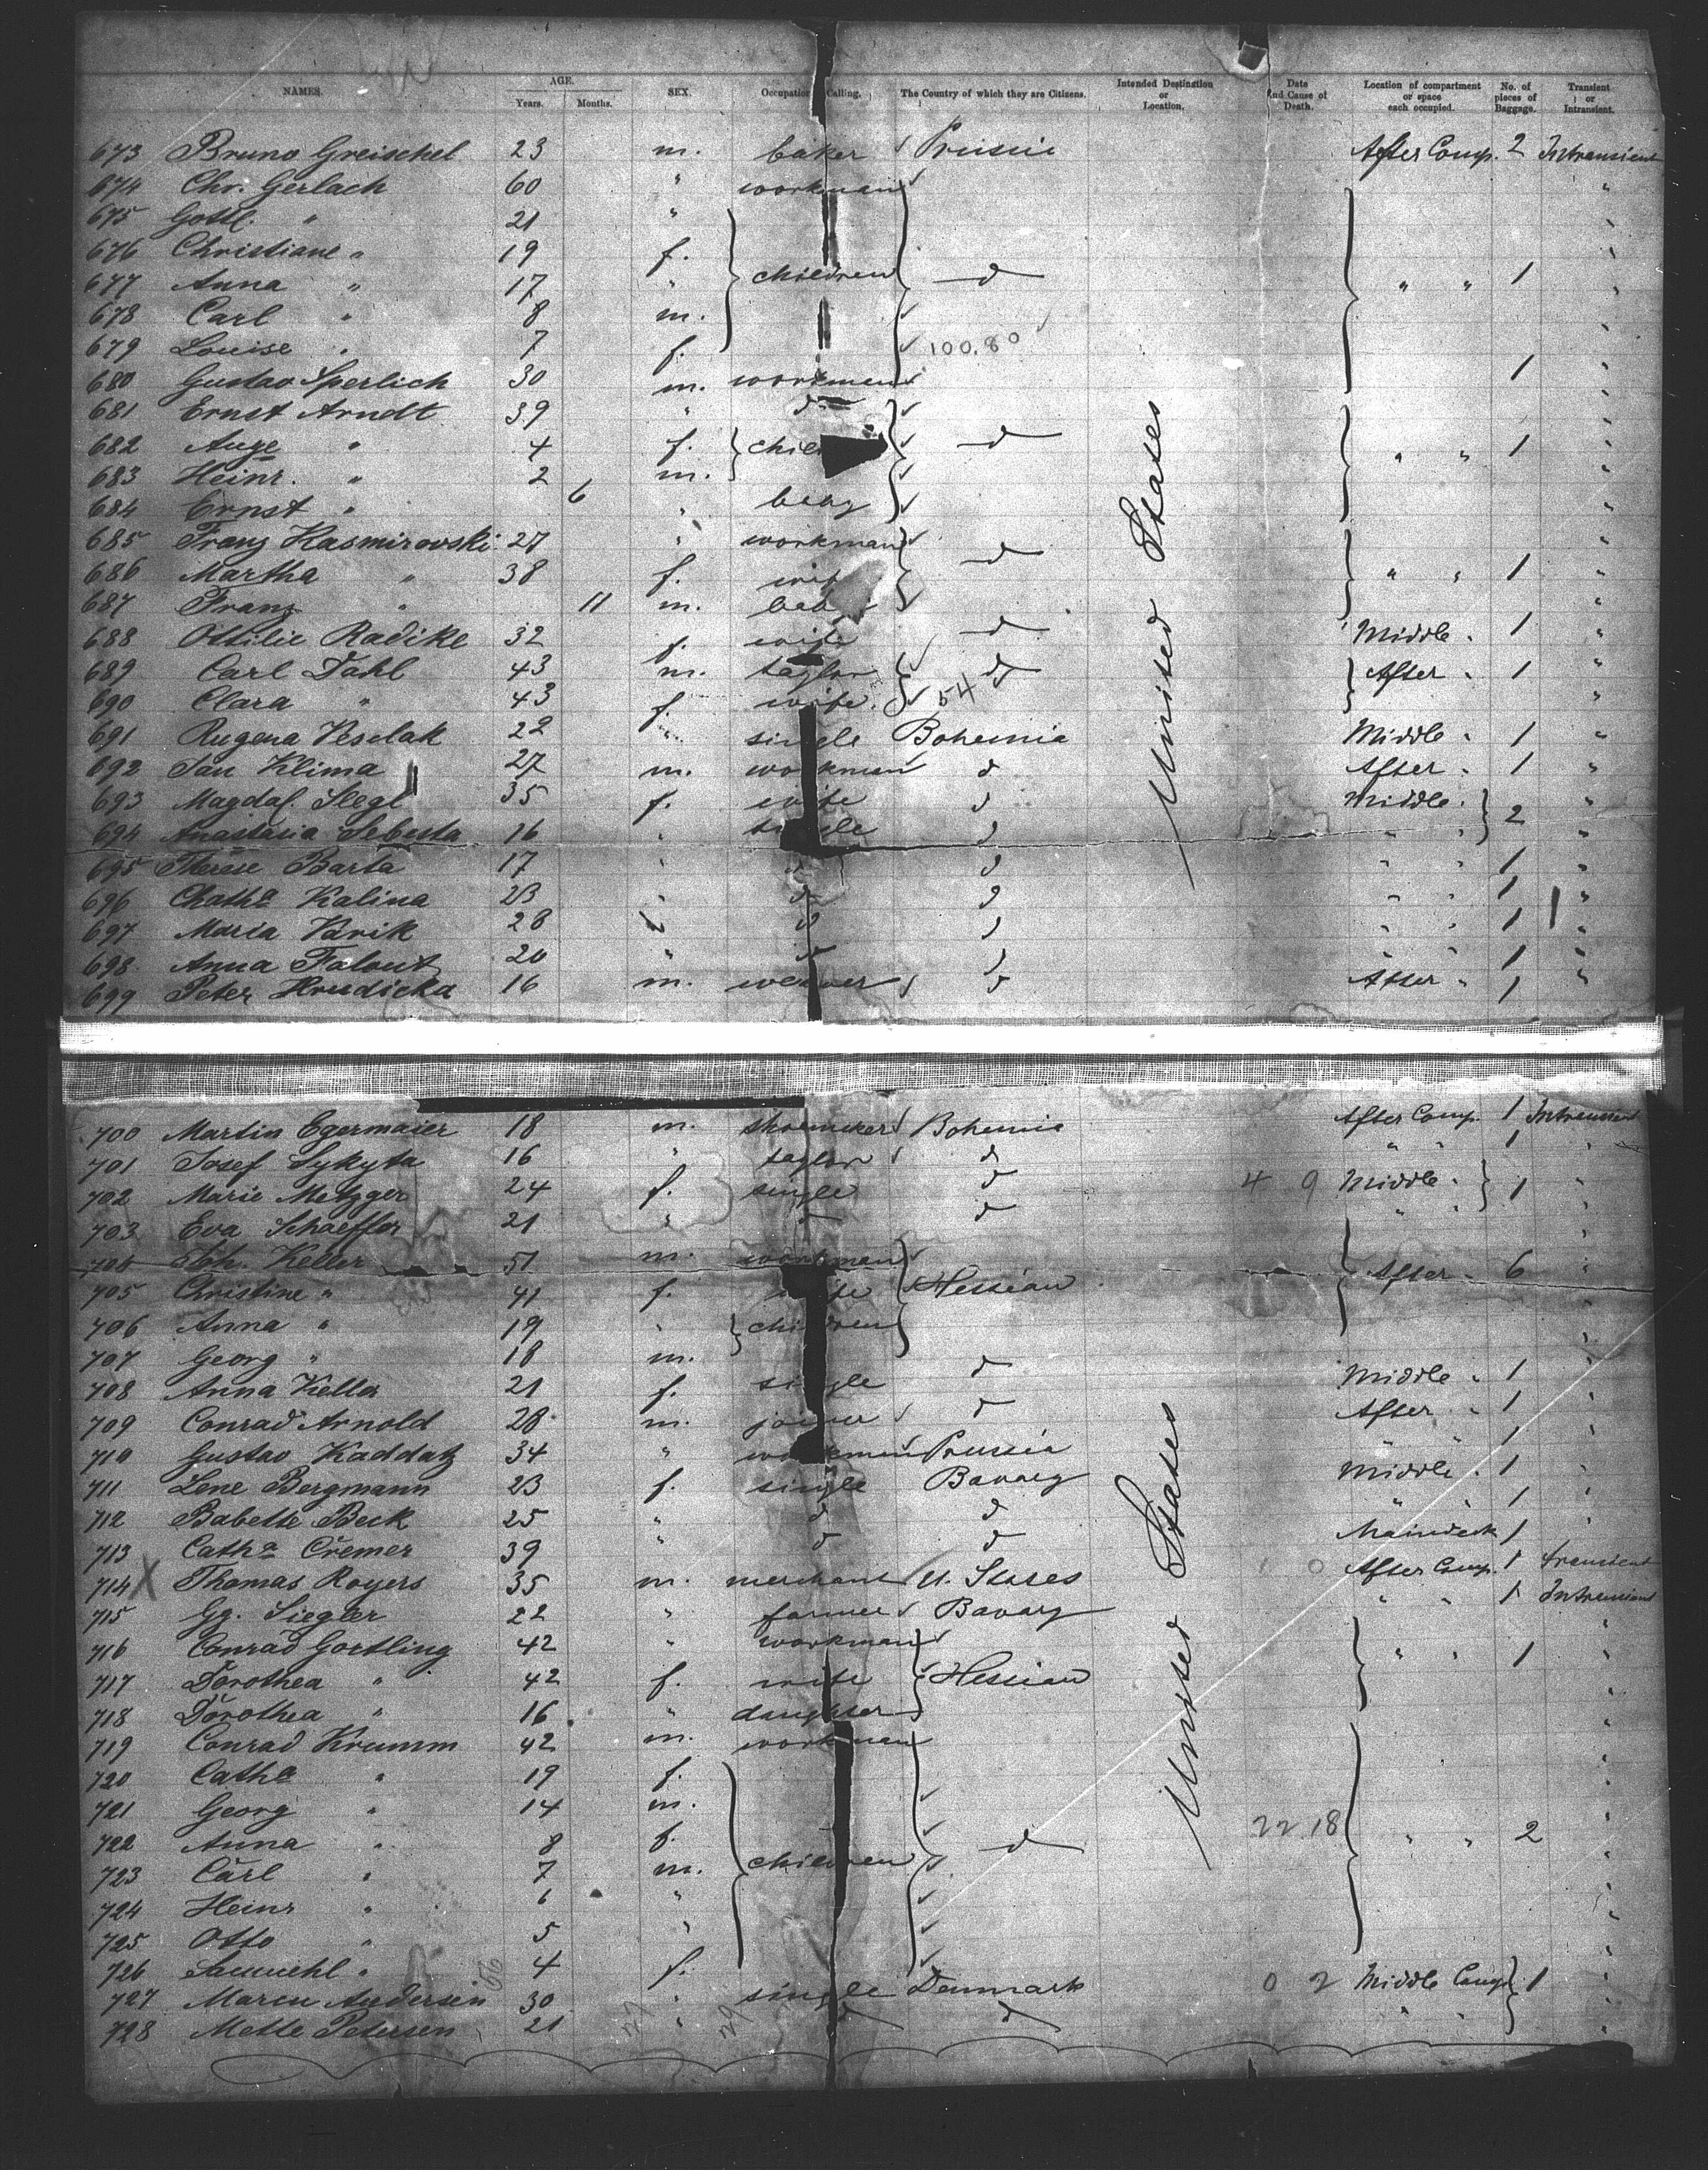 NAMES. AGE. Years. Months. SEX. Occupation Calling. The Country of which they are Citizens. Intended Destination or Location. Date and Cause of Death. Location of compartment or space each occupied. No. of pieces of Baggage. Transient or Intransient.
673 Bruno Greischel 23 m. baker Prussia After Comp. 2 Intransient
674 Chr. Gerlach 60 " workman "
675 Gottl. " 21 " "
676 Christiane " 19 f. "
677 Anna " 17 " children d " " 1 "
678 Carl " 8 m. "
679 Louise " 7 f. 100.80 "
680 Gustav Sperlich 30 m. workman 1 "
681 Ernst Arndt 39 " d "
682 Auge " 4 f. chil d " " 1 "
683 Heinr. " 2 m. "
684 Ernst " 6 " baby "
685 Franz Kasmirovski 27 " workman d "
686 Martha " 38 f. wife " " 1 "
687 Franz " 11 m. bab "
688 Ottilie Radike 32 f. wife d Middle " 1 "
689 Carl Dahl 43 m. taylor d After " 1 "
690 Clara " 43 f. wife 54 "
691 Rugena Veselak 22 " single Bohemia Middle " 1 "
692 Jan Klima 27 m. workman d After " 1 "
693 Magdal. Slegl 35 f. wife d Middle " 2 "
694 Anastasia Sebesta 16 " single d " " "
695 Therese Barta 17 " d d " " 1 "
696 Cath<sup>a</sup> Kalina 23 " d d " " 1 "
697 Maria Varik 28 " d d " " 1 "
698 Anna Falout 20 " d d 1 "
699 Peter Hrudicka 16 m. weaver d After " 1 "
United States
700 Martin Egermaier 18 m. shoemaker Bohemia After Comp. 1 Intransient
701 Josef Sykyta 16 " taylor d " " 1 "
702 Marie Metzger 24 f. single d 4 9 Middle " 1 "
703 Eva Schaeffer 21 " d d " " "
704 Joh. Keller 51 m. workman "
705 Christine " 41 f. wife Hessian After " 6 "
706 Anna " 19 " children
707 Georg " 18 m. "
708 Anna Keller 21 f. single d Middle " 1 "
709 Conrad Arnold 28 m. joiner d After " 1 "
710 Gustav Kaddatz 34 " workman Prussia " " 1 "
711 Lene Bergmann 23 f. single Bavary Middle " 1 "
712 Babette Beck 25 " d d " 1 "
713 Cath<sup>a</sup> Cremer 39 " d d Maindeck 1 "
714 X Thomas Royers 35 m. merchant U. States 1 0 After Comp. 1 transient
715 Gg. Siegler 22 " farmer Bavary " " 1 Intransient
716 Conrad Goetling 42 " workman "
717 Dorothea " 42 f. wife Hessian " " 1 "
718 Dorothea " 16 " daughter "
719 Conrad Krumm 42 m. workman "
720 Cath<sup>a</sup> " 19 f. "
721 Georg " 14 m. "
722 Anna " 8 f. d 22.18 " " 2 "
723 Carl " 7 m. children "
724 Heinr " 6 " "
725 Otto " 5 " "
726 Samuehl " 4 f. "
727 Maren Andersen 30 " single Denmark 0 2 Middle Comp. 1 "
728 Mette Petersen 21 " d d " " "
United States